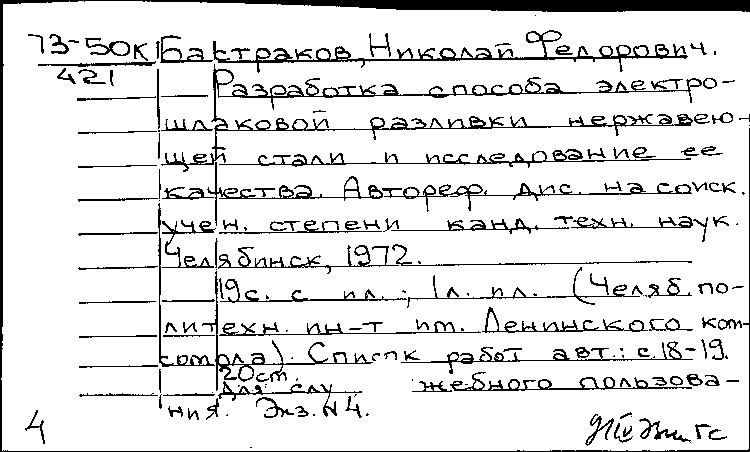 73-50к Бастраков, Николай Федорович.
421 Разработка способа электро-
шлаковой разливки нержавею-
щей стали и исследование ее
качества. Автореф. дис. на соиск.
учен. степени канд. техн. наук.
Челябинск, 1972.
19с. с ил.; 1л. ил. (Челяб. по-
литехн. ин-т им. Ленинского ком-
сомола). Список работ авт.: с.18-19.
20см.
Для слу жебного пользова-
ния. Экз. N4.
4